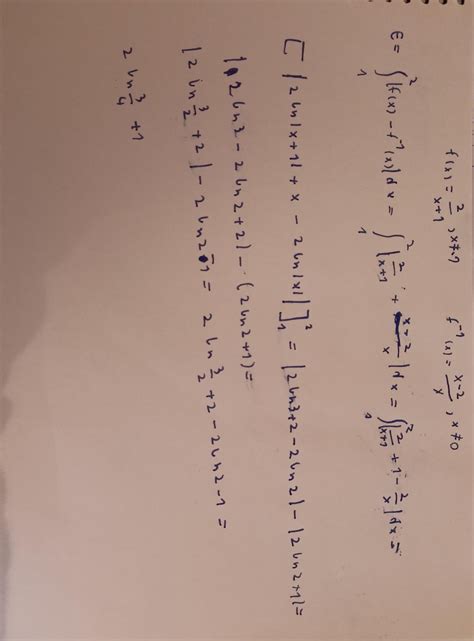 f(x) = 2/(x+1), x≠-1    f⁻¹(x) = (x-2)/x, x≠0
E = ∫₁² |f(x) - f⁻¹(x)|dx = ∫₁² |2/(x+1) + (x-2)/x|dx = ∫₁² |2/(x+1) + 1 - 2/x|dx =
[|2ln|x+1| + x - 2ln|x||]₁² = |2ln3+2-2ln2| - |2ln2+1| =
|2ln3 - 2ln2 + 2| - (2ln2+1) =
|2ln 3/2 + 2| - 2ln2 - 1 = 2ln 3/2 + 2 - 2ln2 - 1 =
2ln 3/4 + 1